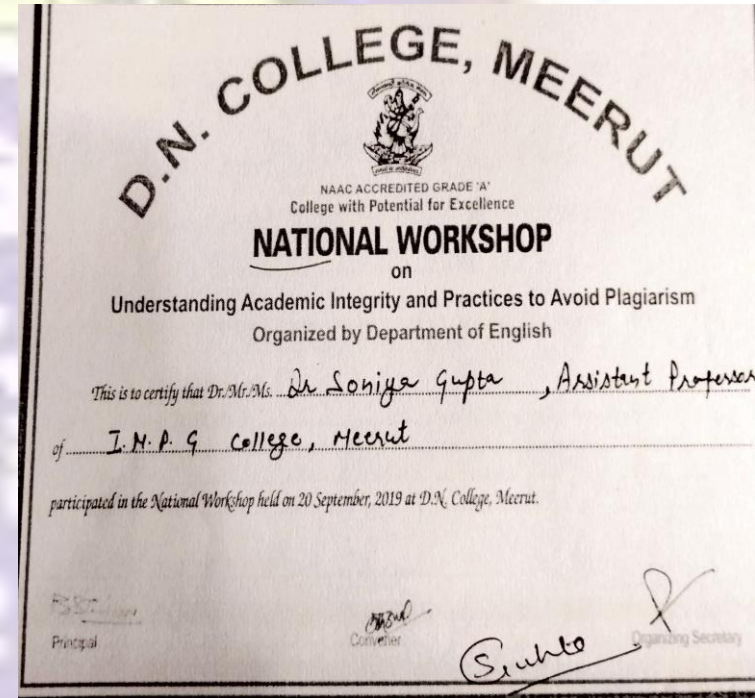 D.N. COLLEGE, MEERUT
NAAC ACCREDITED GRADE 'A'
College with Potential for Excellence
NATIONAL WORKSHOP
on
Understanding Academic Integrity and Practices to Avoid Plagiarism
Organized by Department of English
This is to certify that Dr./Mr./Ms. Dr Soniya Gupta, Assistant Professor
of I.N.P.G College, Meerut
participated in the National Workshop held on 20 September, 2019 at D.N. College, Meerut.
Principal Convener Organizing Secretary